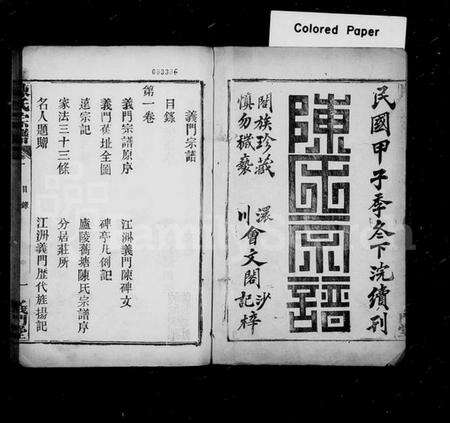 Colored Paper
民國甲子季冬下浣續刊
陳氏宗譜
闔族珍藏
慎勿褻
會文閣
記梓
093336
義門宗譜
目錄
第一卷
義門宗譜原序
江洲義門陳碑文
義門舊址全圖
碑亭凡例記
遷宗記
廬陵舊塘陳氏宗譜序
家法三十三條
分居莊所
名人題贈
江洲義門歷代旌揚記
陳氏宗譜
卷一
目錄
一
義門堂